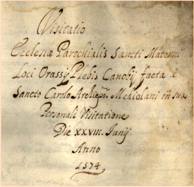 Visitatio
Ecclesiæ Parochialis Sancti Materni
Loci Orassij Plebis Canobij facta a
Sancto Carolo Archiepo Mediolani in sua
Personali Visitatione
Die XXVIII Junij
Anno
1574